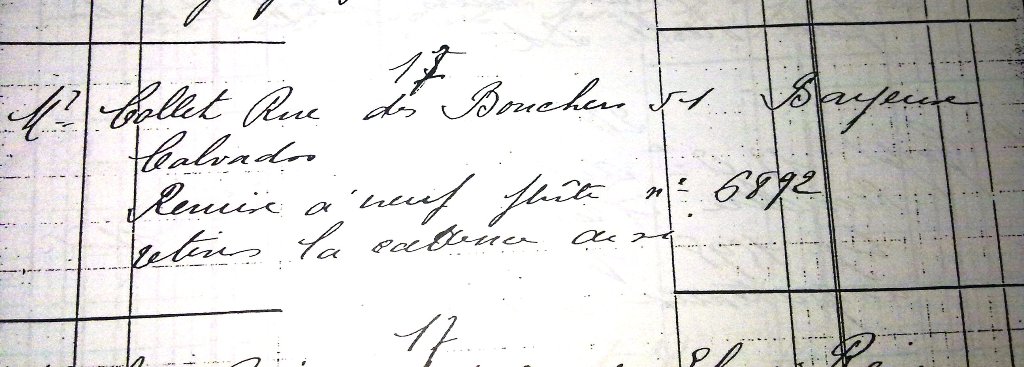 17
Mr Collet Rue des Bouchers 51 Bayeux
Calvados
Remise à neuf flûte n° 6892
la cadence de si
17